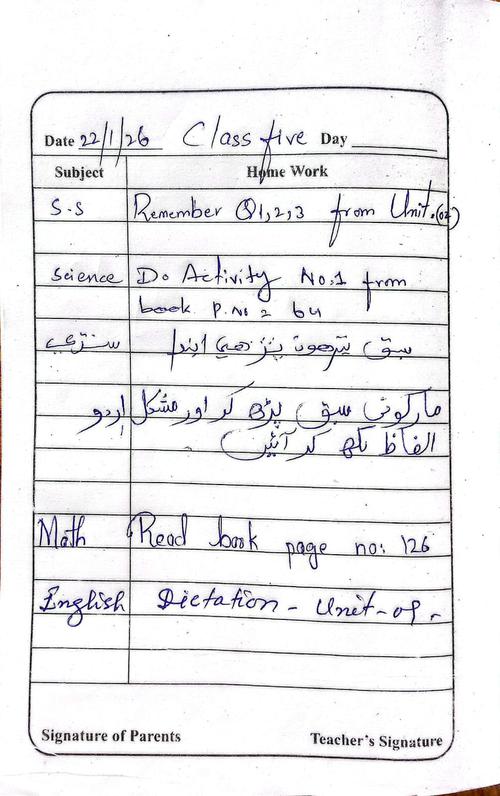 Date 22/1/26 Class five Day
Subject Home Work
S.S Remember Q1,2,3 from Unit.(02)
Science Do Activity No.1 from
book P.No 2 64
سبق
اردو مارکونی سبق پڑھ کر اور مشکل
الفاظ لکھ کر آئیں
Math Read book page no: 126
English Dictation - Unit-09-
Signature of Parents Teacher's Signature